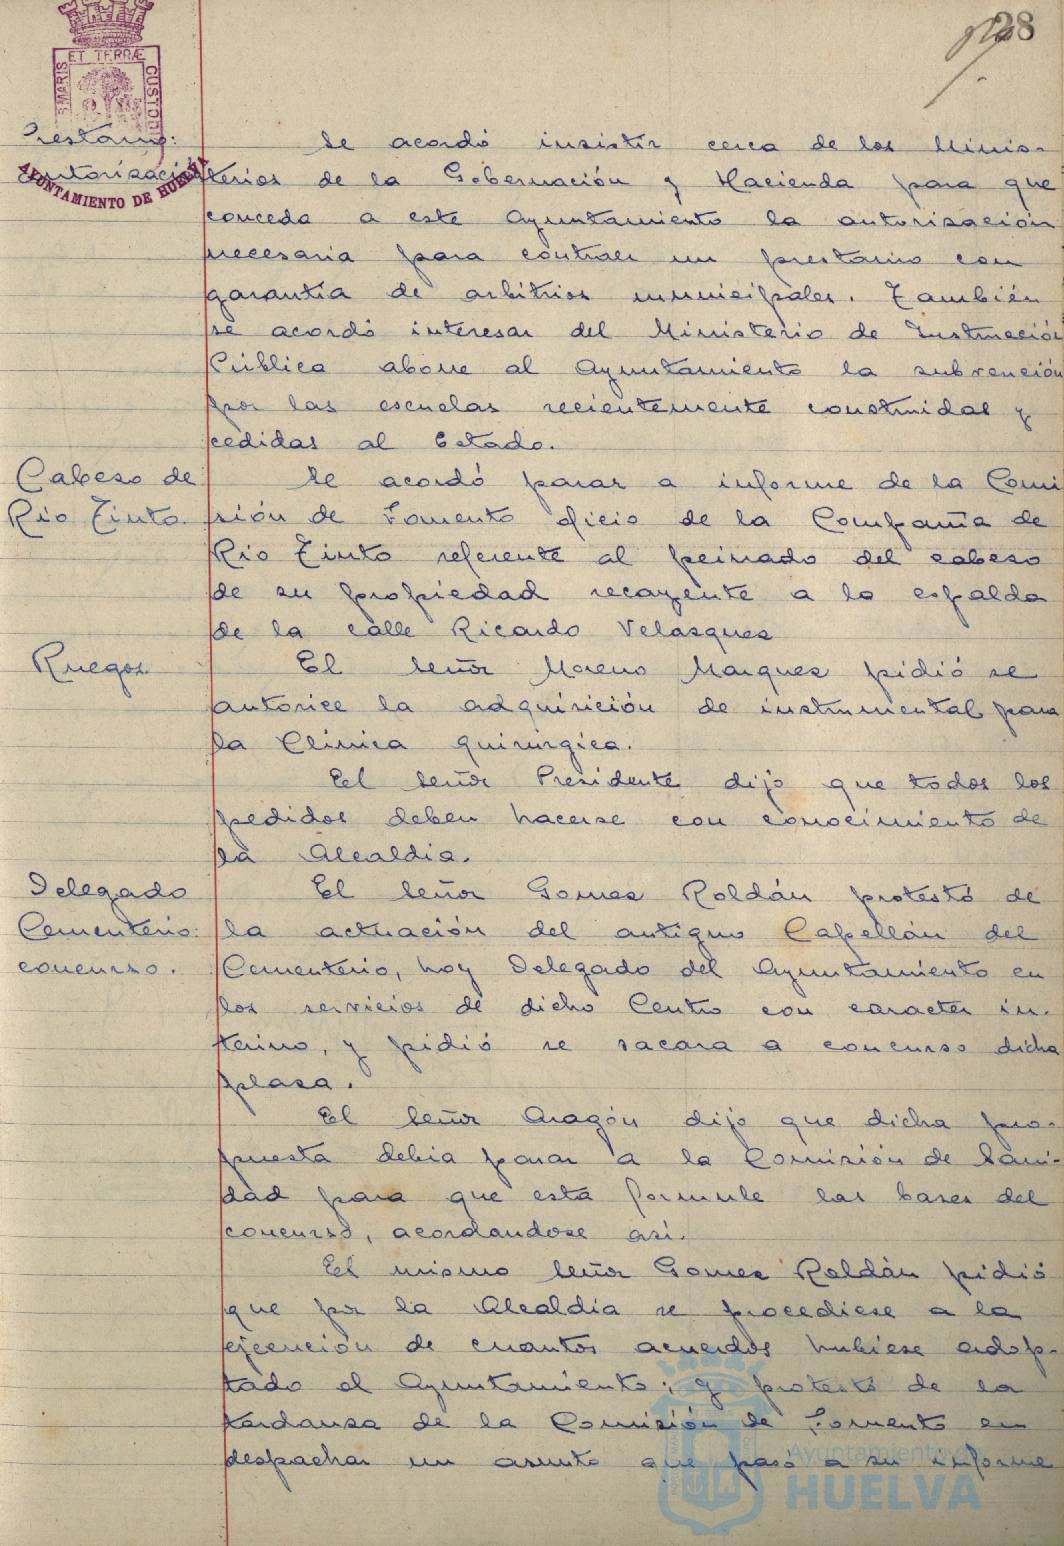 28
S. MARIS ET TERRÆ CUSTODI
AYUNTAMIENTO DE HUELVA
Prestamo:
autorización
Se acordó insistir cerca de los Minis-
terios de la Gobernación y Hacienda para que
conceda a este Ayuntamiento la autorisación
necesaria para contraer un prestamo con
garantía de arbitrios municipales. También
se acordó interesar del Ministerio de Instrucción
Pública abone al Ayuntamiento la subvención
por las escuelas recientemente construidas y
cedidas al Estado.
Cabeso de
Rio Tinto.
Se acordó pasar a informe de la Comi
sión de Fomento oficio de la Compañia de
Rio Tinto referente al peinado del cabeso
de su propiedad recayente a la espalda
de la calle Ricardo Velasques
Ruegos.
El Señor Moreno Marques pidió se
autorice la adquisición de instrumental para
la Clinica quirúrgica.
El Señor Presidente dijo que todos los
pedidos deben hacerse con conocimiento de
la Alcaldia.
Delegado
Cementerio:
concurso.
El Señor Gomes Roldán protestó de
la actuación del antiguo Capellán del
Cementerio, hoy Delegado del Ayuntamiento en
los servicios de dicho Centro con caracter in-
terino, y pidió se sacara a concurso dicha
plasa.
El Señor Aragón dijo que dicha pro-
puesta debia pasar a la Comisión de Sani-
dad para que esta formule las bases del
concurso, acordandose asi.
El mismo Señor Gomes Roldán pidió
que por la Alcaldía se procediese a la
ejecución de cuantos acuerdos hubiese adop-
tado el Ayuntamiento; y protestó de la
tardansa de la Comisión de Fomento en
despachar un asunto que pasó a su informe
Ayuntamiento de
HUELVA